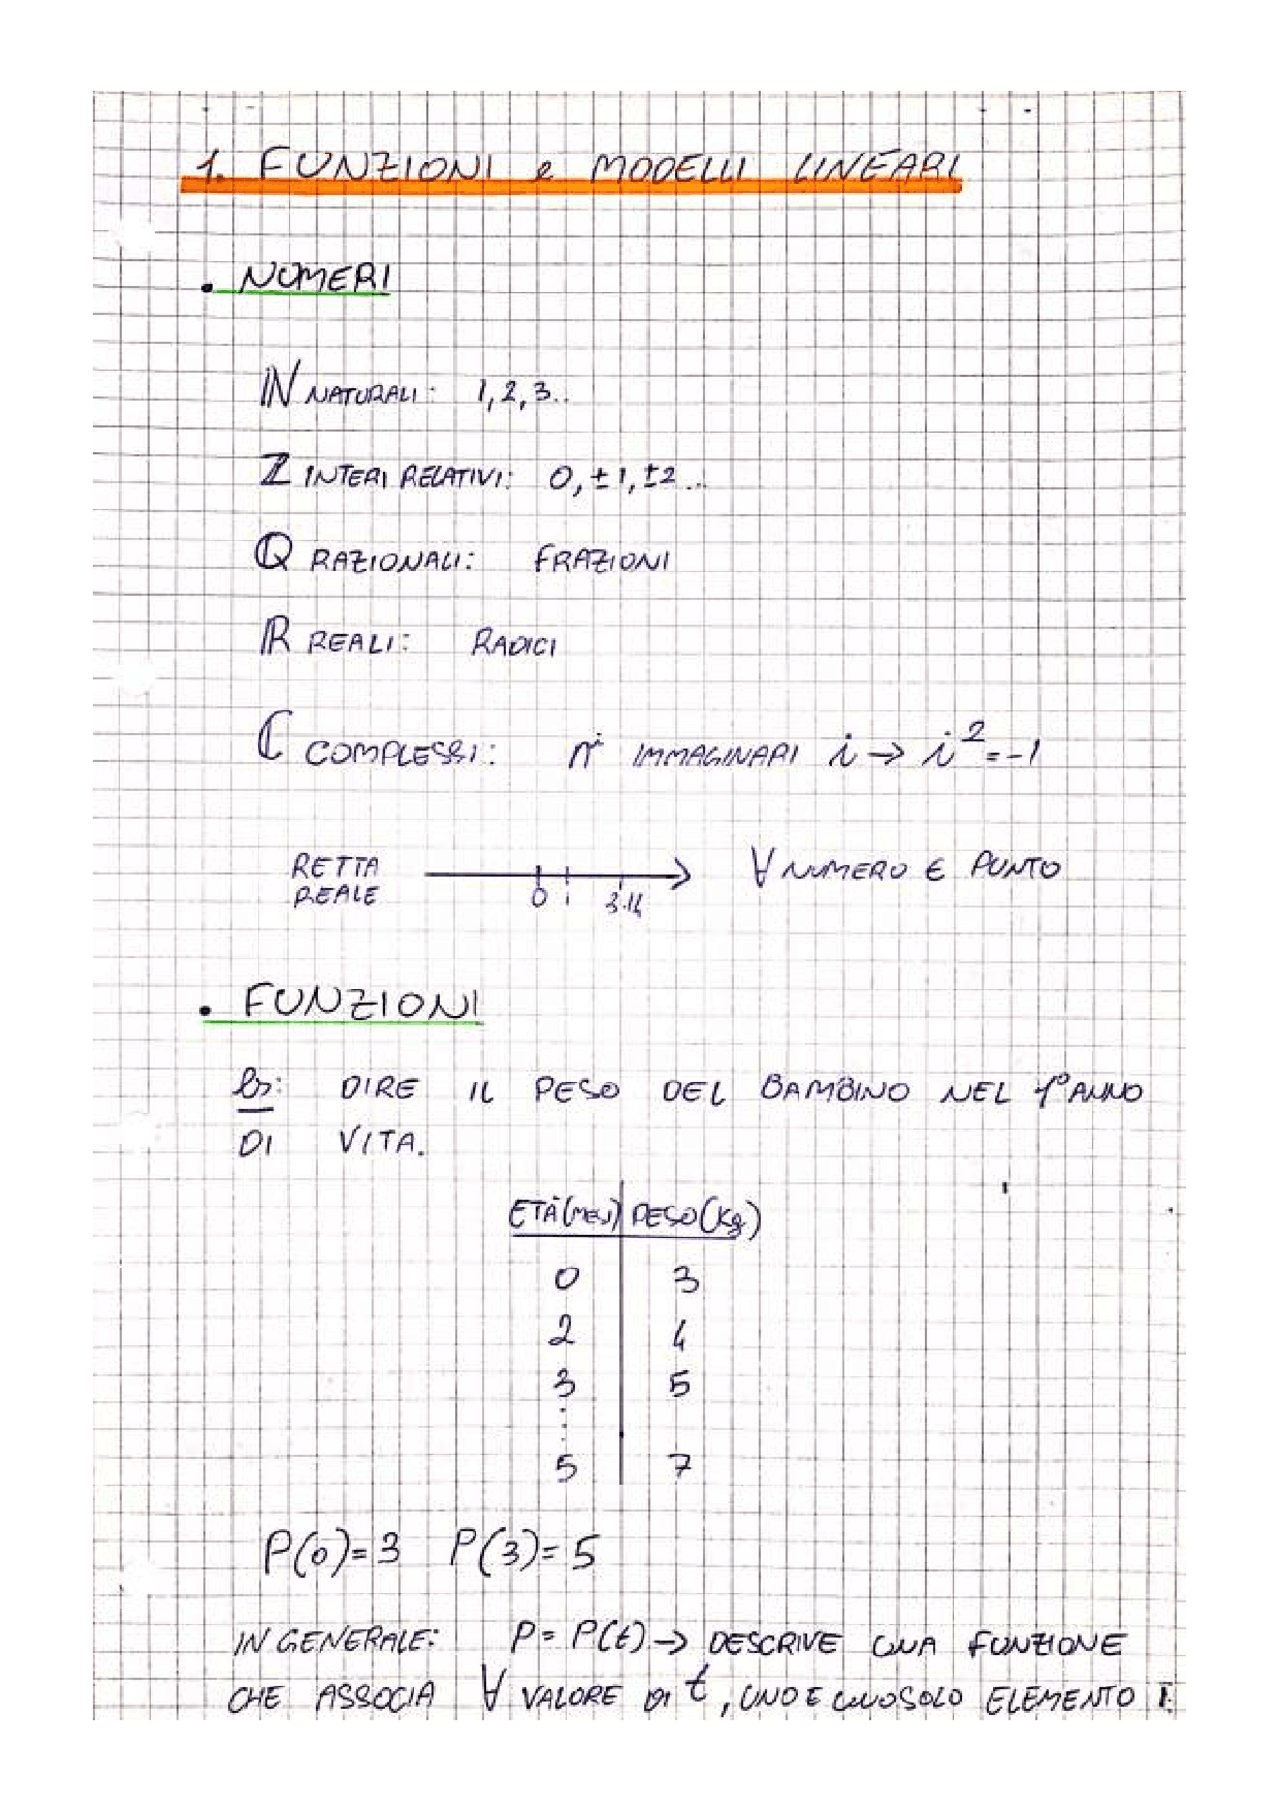 1. FUNZIONI e MODELLI LINEARI
. NUMERI
ℕ NATURALI: 1,2,3..
ℤ INTERI RELATIVI: 0, ±1, ±2...
ℚ RAZIONALI: FRAZIONI
ℝ REALI: RADICI
ℂ COMPLESSI: n° IMMAGINARI i → i² = -1
RETTA REALE 0 1 3.14 ∀ NUMERO E PUNTO
. FUNZIONI
Es: DIRE IL PESO DEL BAMBINO NEL 1° ANNO
DI VITA.
ETÀ (MESI) PESO (Kg)
0 3
2 4
3 5
⋮
5 7
P(0)=3 P(3)=5
IN GENERALE: P = P(t) → DESCRIVE UNA FUNZIONE
CHE ASSOCIA ∀ VALORE DI t, UNO E UNO SOLO ELEMENTO